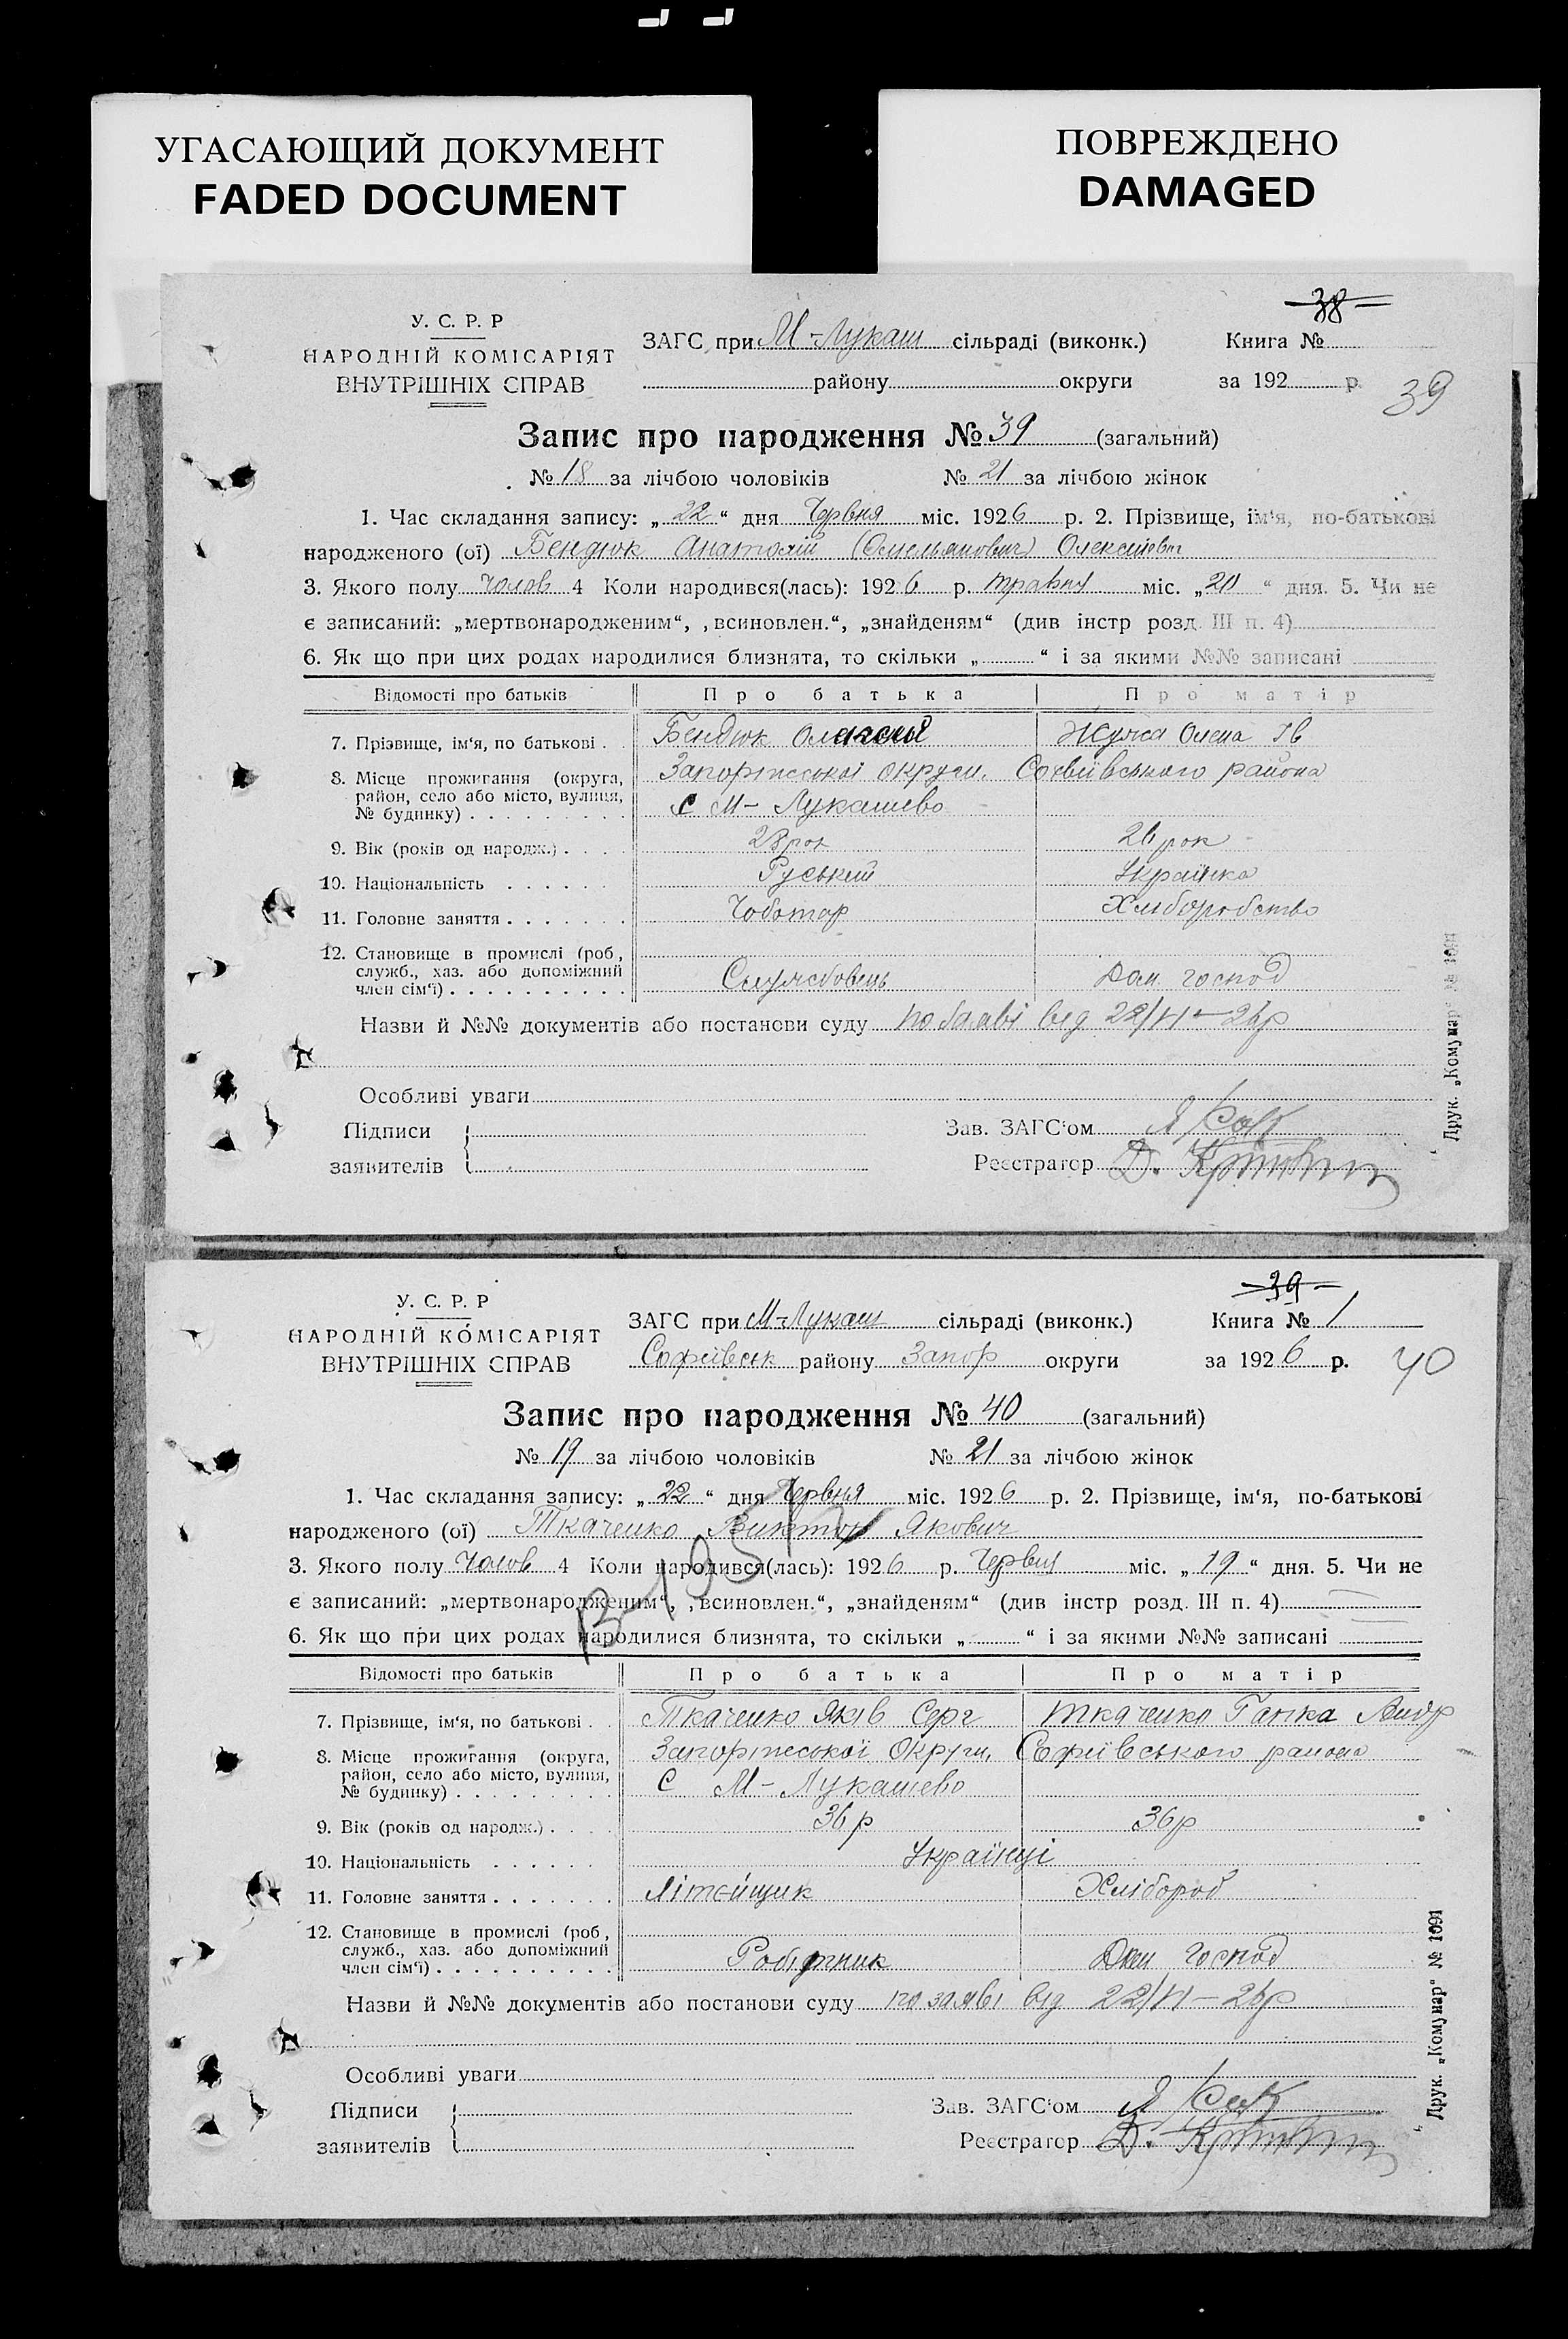 УГАСАЮЩИЙ ДОКУМЕНТ
FADED DOCUMENT
ПОВРЕЖДЕНО
DAMAGED
38
У. С. Р. Р
НАРОДНІЙ КОМІСАРІЯТ
ВНУТРІШНІХ СПРАВ
ЗАГС при М-Лукаш сільраді (виконк.) Книга №
району округи за 192 р.
39
Запис про народження № 39 (загальний)
№ 18 за лічбою чоловіків № 21 за лічбою жінок
1. Час складання запису: „ 22 “ дня Червня міс. 1926 р. 2. Прізвище, ім‘я, по-батькові
народженого (ої) Бендюк Анатолій (Омельянович) Олексієвич
3. Якого полу чолов 4 Коли народився(лась): 1926 р. травня міс. „ 20 “ дня. 5. Чи не
є записаний: „мертвонародженим“, ‚всиновлен.“, „знайденям“ (див інстр розд III п. 4)
6. Як що при цих родах народилися близнята, то скільки „ “ і за якими №№ записані
Відомості про батьків Про батька Про матір
7. Прізвище, ім‘я, по батькові . . Бендюк Олексій Жужа Олена Ів
8. Місце прожигання (округа, район, село або місто, вулиця, № будинку) . . . . . . . . . Запоріжської округи, Софіївського района
с М-Лукашево
9. Вік (років од народж.) . . . . 28 рок 26 рок
10. Національність . . . . . . Руський Українка
11. Головне заняття . . . . . . . Чоботар Хліборобство
12. Становище в промислі (роб, служб., хаз. або допоміжний член сім‘ї) . . . . . . . . . . Службовець Дом. господ
Назви й №№ документів або постанови суду по заяві від 22/VI-26р
Особливі уваги
Підписи
заявителів
Зав. ЗАГС‘ом
Реєстратор Д.
Друк. „Комунар“ № 1091
39
У. С. Р. Р
НАРОДНІЙ КОМІСАРІЯТ
ВНУТРІШНІХ СПРАВ
ЗАГС при М-Лукаш сільраді (виконк.) Книга № 1
Софіївськ району Запор округи за 1926 р.
40
Запис про народження № 40 (загальний)
№ 19 за лічбою чоловіків № 21 за лічбою жінок
1. Час складання запису: „ 22 “ дня Червня міс. 1926 р. 2. Прізвище, ім‘я, по-батькові
народженого (ої) Ткаченко Виктор Якович
3. Якого полу Чолов 4 Коли народився(лась): 1926 р. Червня міс. „ 19 “ дня. 5. Чи не
є записаний: „мертвонародженим“, ‚всиновлен.“, „знайденям“ (див інстр розд. III п. 4)
6. Як що при цих родах народилися близнята, то скільки „ “ і за якими №№ записані
Відомості про батьків Про батька Про матір
7. Прізвище, ім‘я, по батькові . . Ткаченко Яків Серг Ткаченко Ганка Андр
8. Місце прожигання (округа, район, село або місто, вулиця, № будинку) . . . . . . . . . Запоріжської Округи, Софіївського района
с М-Лукашево
9. Вік (років од народж.) . . . . 36 р 36 р
10. Національність . . . . . . Українці
11. Головне заняття . . . . . . . Літейщик Хлібороб
12. Становище в промислі (роб, служб., хаз. або допоміжний член сім‘ї) . . . . . . . . . . Робітник Дом господ
Назви й №№ документів або постанови суду по заяві від 22/VI-26р
Особливі уваги
Підписи
заявителів
Зав. ЗАГС‘ом
Реєстратор Д.
Друк. „Комунар“ № 1091